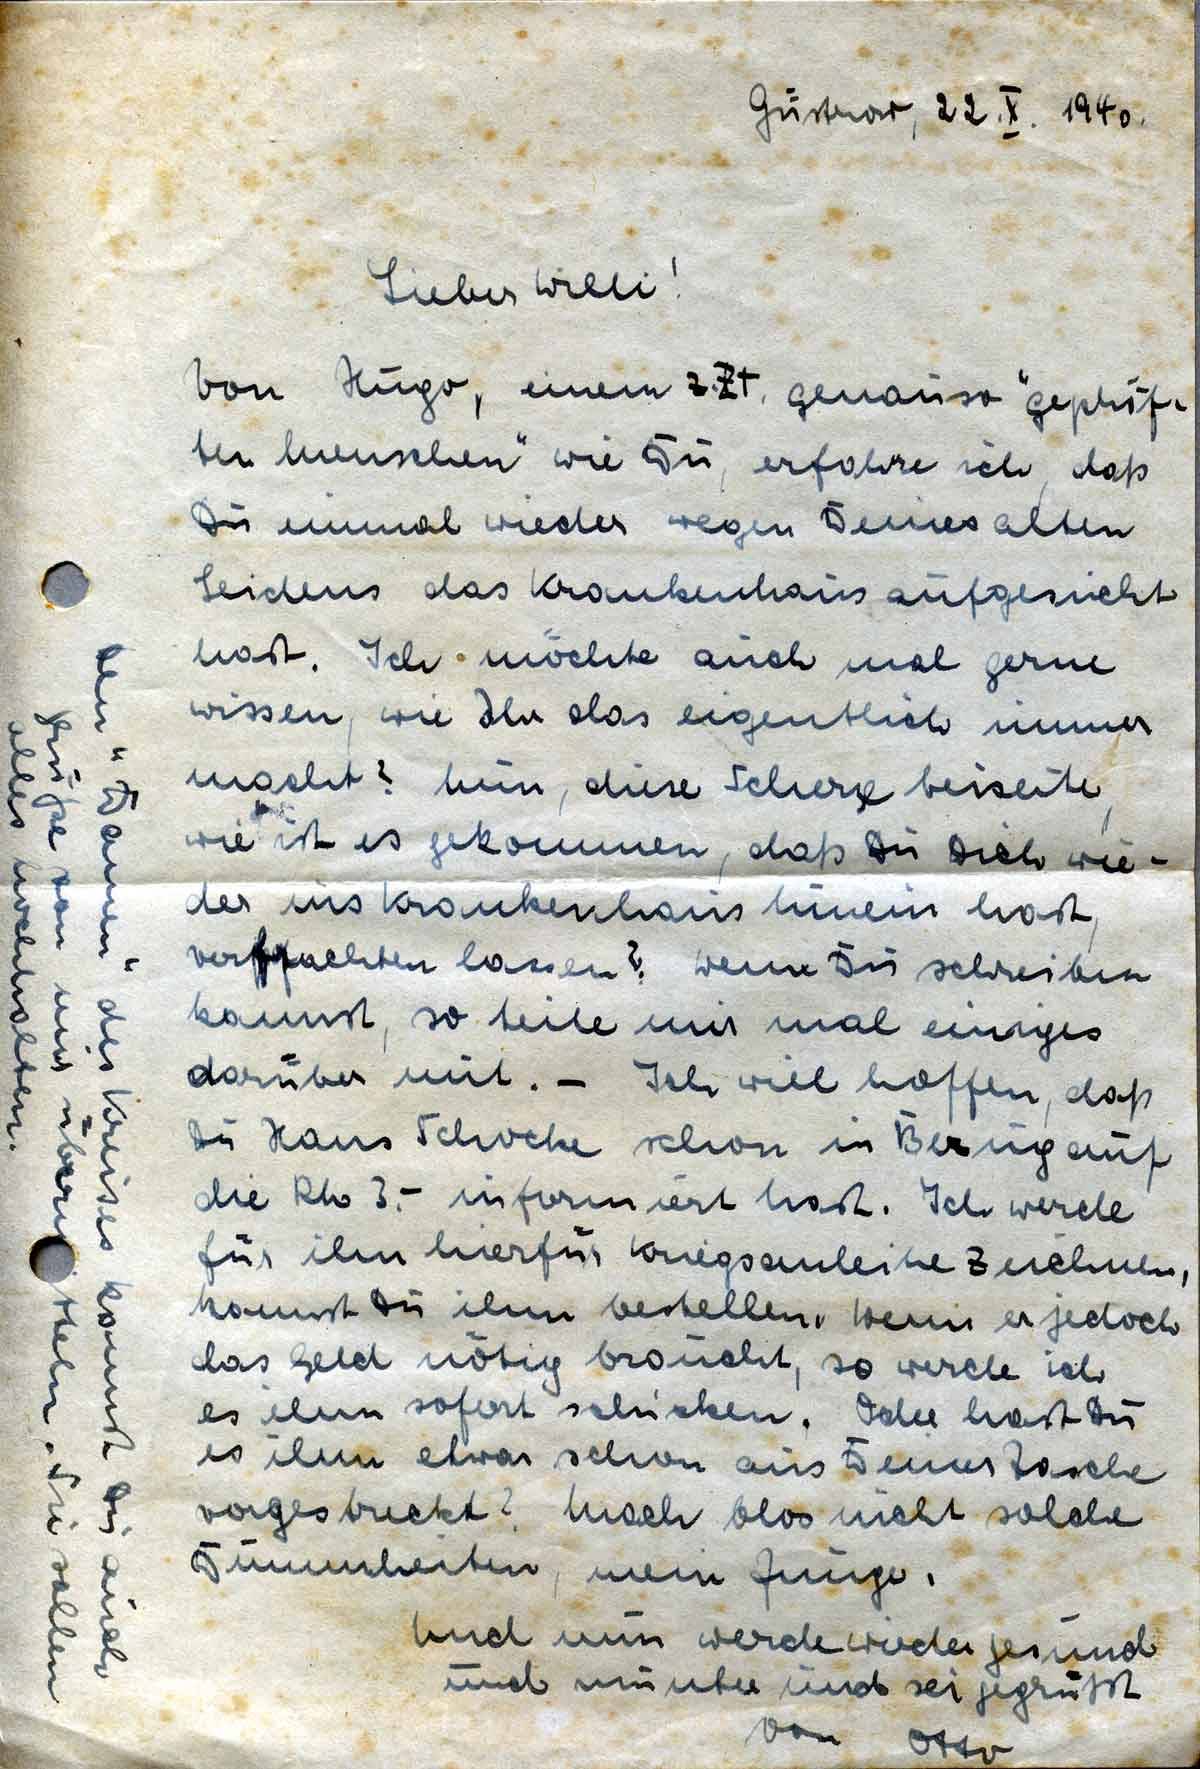 Güstrow, 22.X. 1940.
Lieber Willi!
Von Hugo, einem z.Zt. genauso "geprüf-
ten Menschen" wie Du, erfahre ich, daß
Du einmal wieder wegen Deines alten
Leidens das Krankenhaus aufgesucht
hast. Ich möchte auch mal gerne
wissen, wie Ihr das eigentlich immer
macht? Nun, diese Scherze beiseite,
wie ist es gekommen, daß Du Dich wie-
der ins Krankenhaus hinein hast,
verfrachten lassen? Wenn Du schreiben
kannst, so teile mir mal einiges
darüber mit. – Ich will hoffen, daß
Du Hans Schocke schon in Bezug auf
die RM 3.- informiert hast. Ich werde
für ihn hierfür Kriegsanleihe zeichnen,
kannst Du ihm bestellen. Wenn er jedoch
das Geld nötig braucht, so werde ich
es ihm sofort schicken. Oder hast Du
es ihm etwas schon aus Deiner Tasche
vorgestreckt? Mach blos nicht solche
Dummheiten, mein Junge.
Und nun werde wieder gesund
und munter und sei gegrüßt
von Otto
Den "Damen" des Kreises kannst Du auch
Grüße von mir übermitteln. Sie sollen
alles hochhalten.